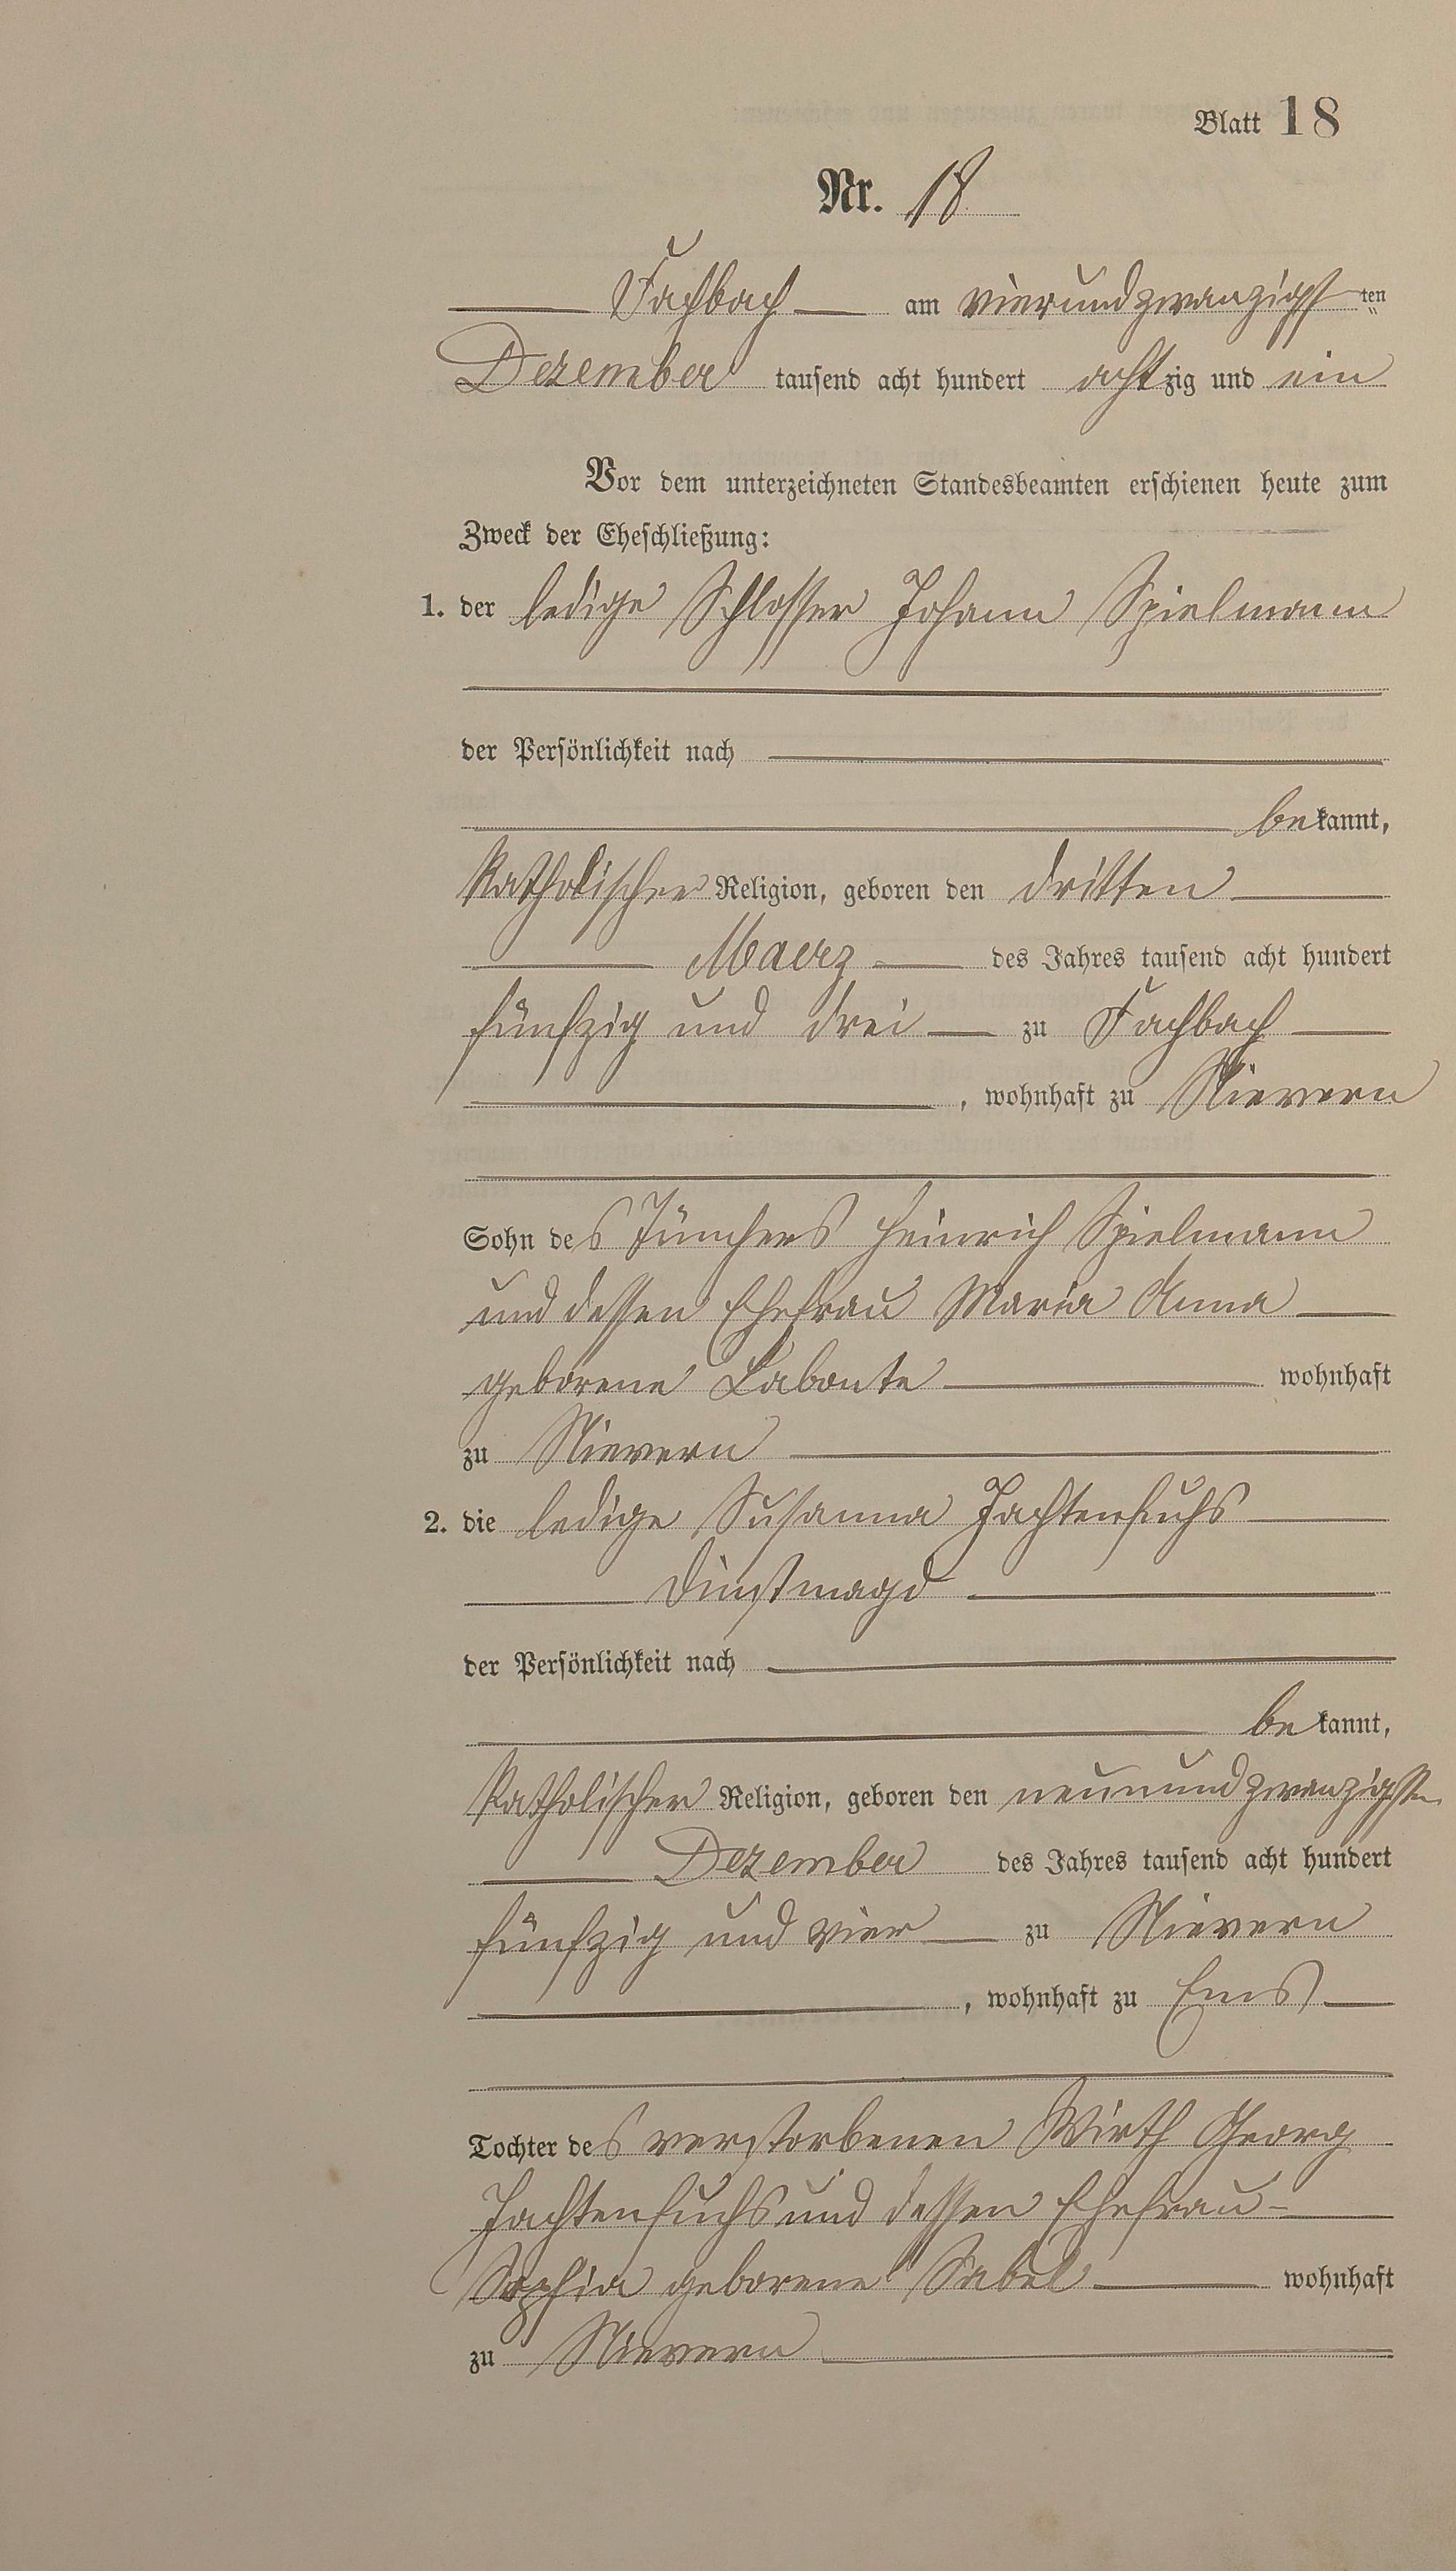 Blatt 18
Nr. 18
Fachbach am vierundzwanzigst ten
Dezember tausend acht hundert achtzig und ein
Vor dem unterzeichneten Standesbeamten erschienen heute zum
Zweck der Eheschließung:
1. der ledige Schlosser Johann Spielmann
der Persönlichkeit nach
bekannt,
katholischer Religion, geboren den dritten
Maerz des Jahres tausend acht hundert
fünfzig und drei zu Fachbach
, wohnhaft zu Nievern
Sohn des Tünchers Heinrich Spielmann
und dessen Ehefrau Maria Anna
geborene Labonte wohnhaft
zu Nievern
2. die ledige Susanna Jachtenfuchs
Dinstmagd
der Persönlichkeit nach
bekannt,
katholischer Religion, geboren den neunundzwanzigsten
Dezember des Jahres tausend acht hundert
fünfzig und vier zu Nievern
, wohnhaft zu Ems
Tochter des verstorbenen Wirth Georg
Jachtenfuchs und dessen Ehefrau
Sophia geborene Sabel wohnhaft
zu Nievern